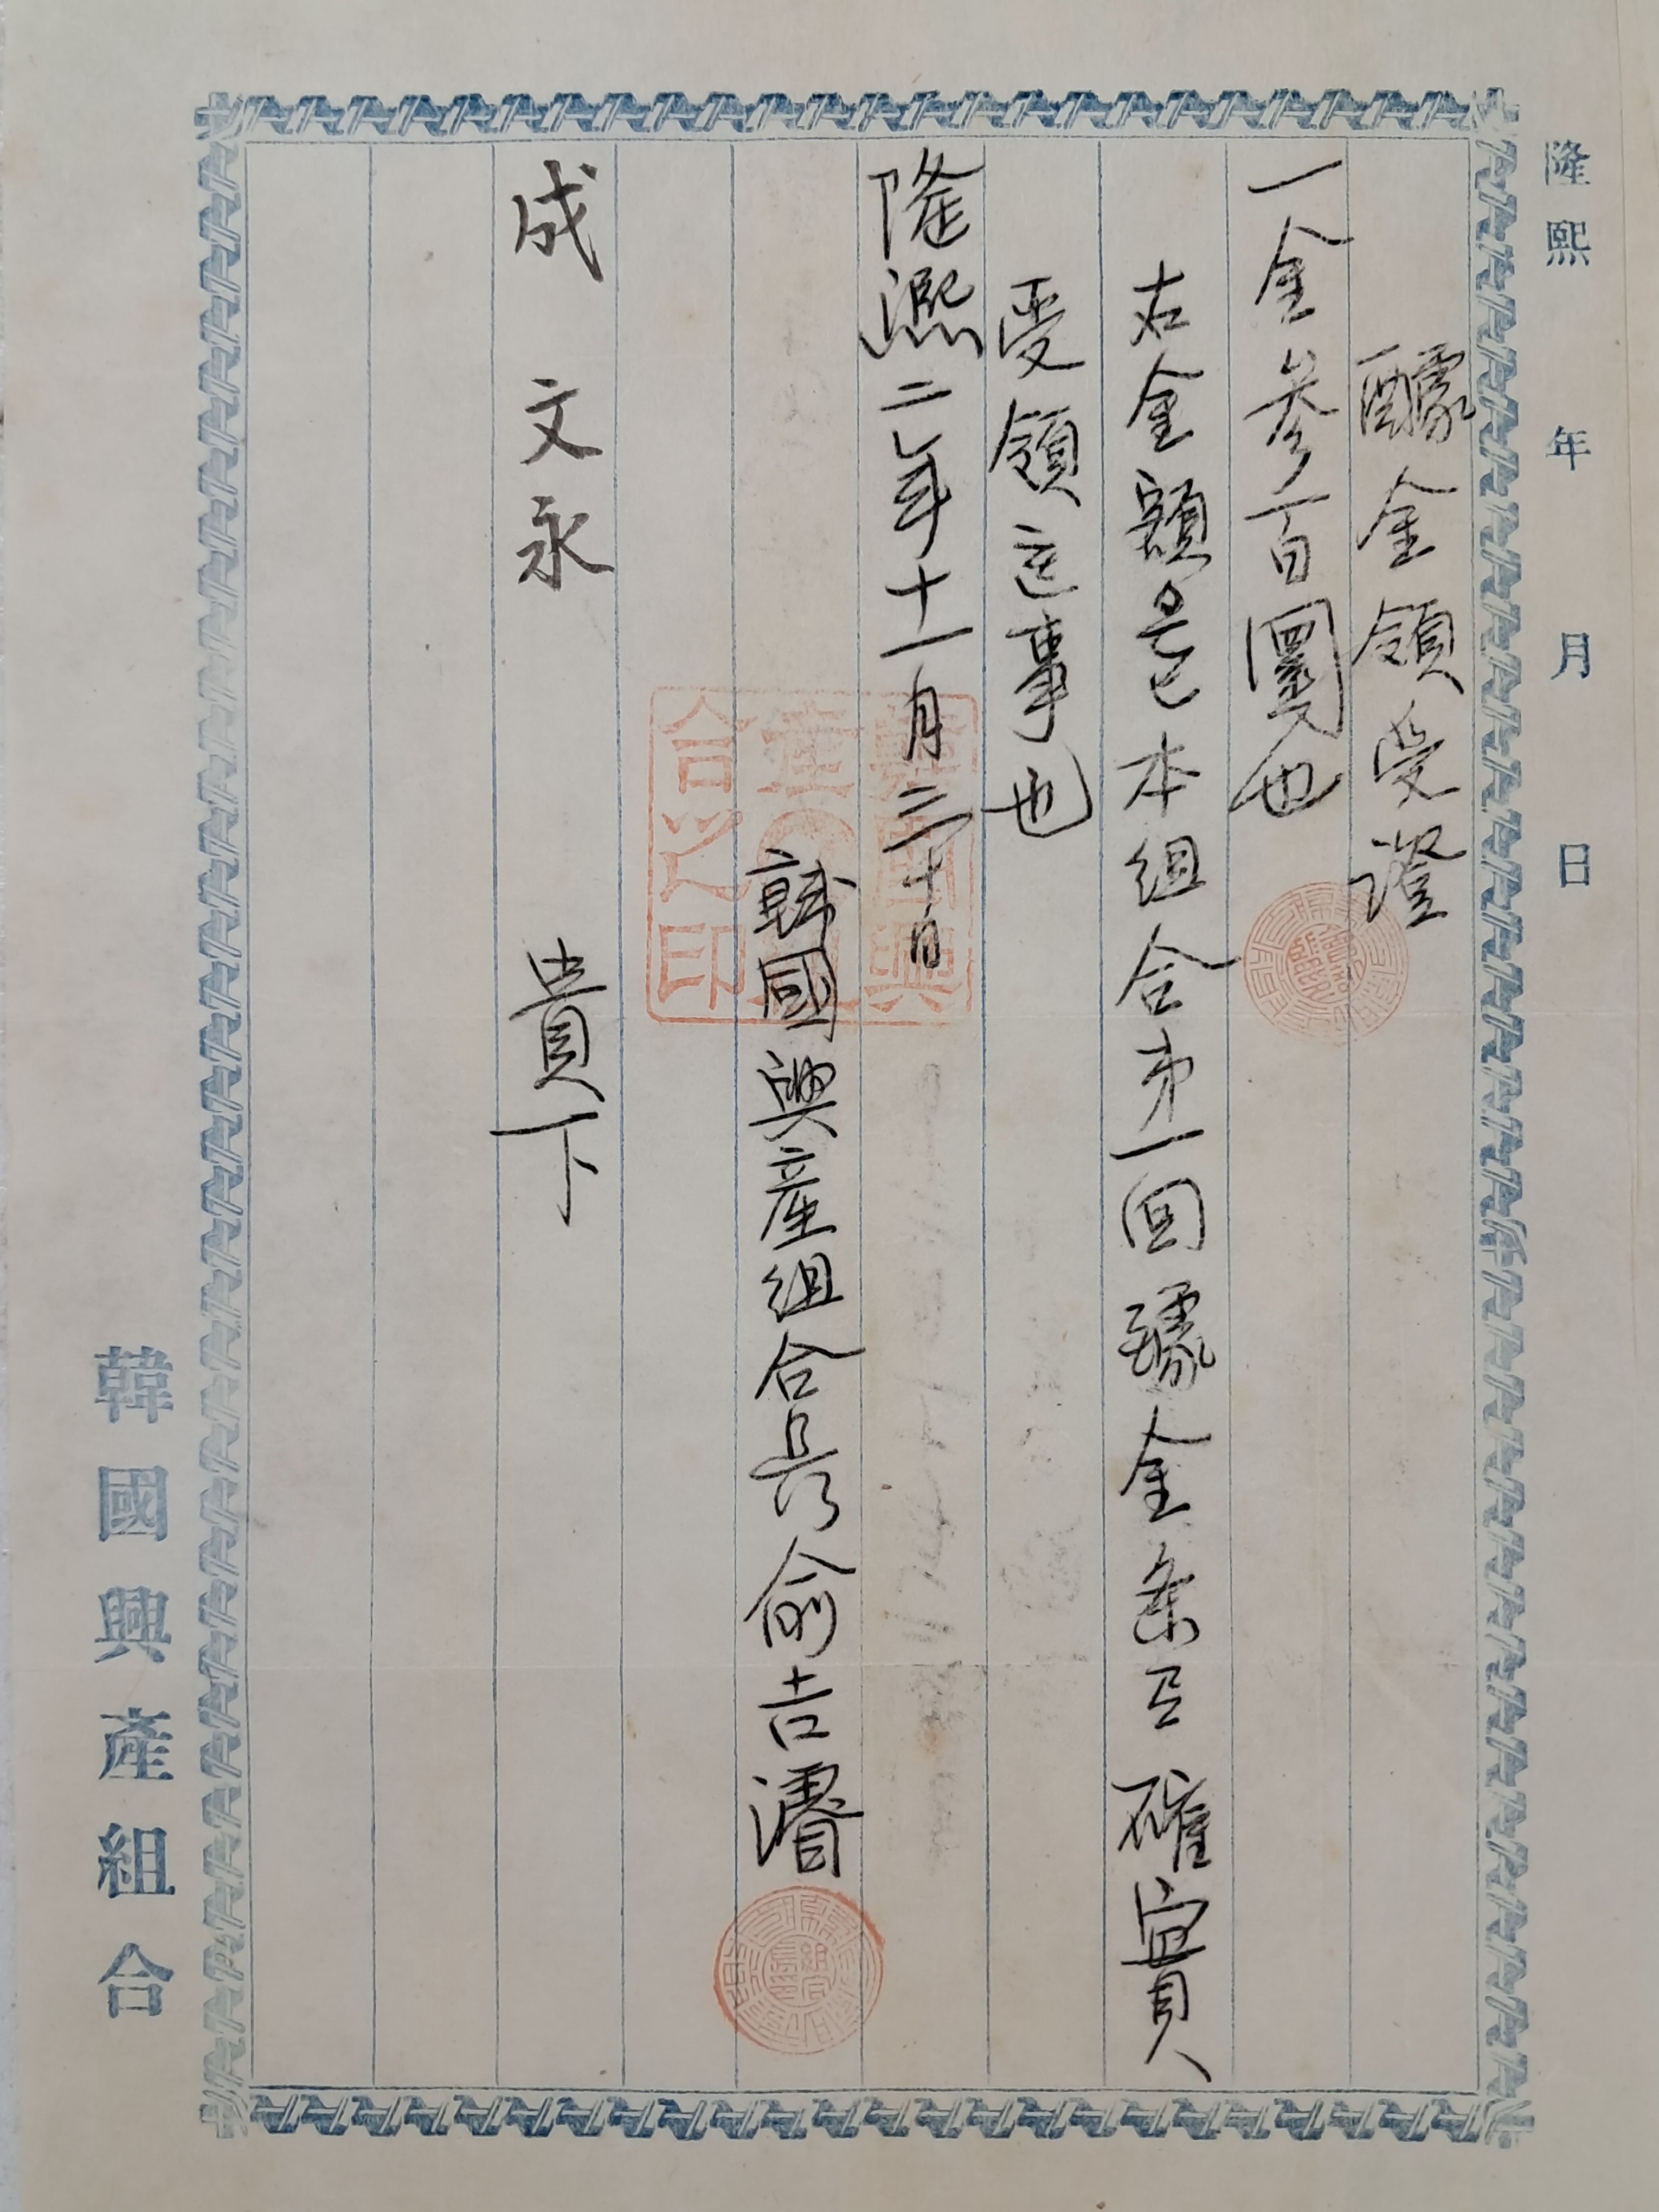 隆熙 年 月 日
醵金領受證
一金參百圜也
右金額은本組合第一回醵金条로確實
受領ᄒᆞᆫ事也
隆熙二年十一月三十日
韓國興産組合長兪吉濬
成文永 貴下
韓國興產組合
韓國興產組合之印